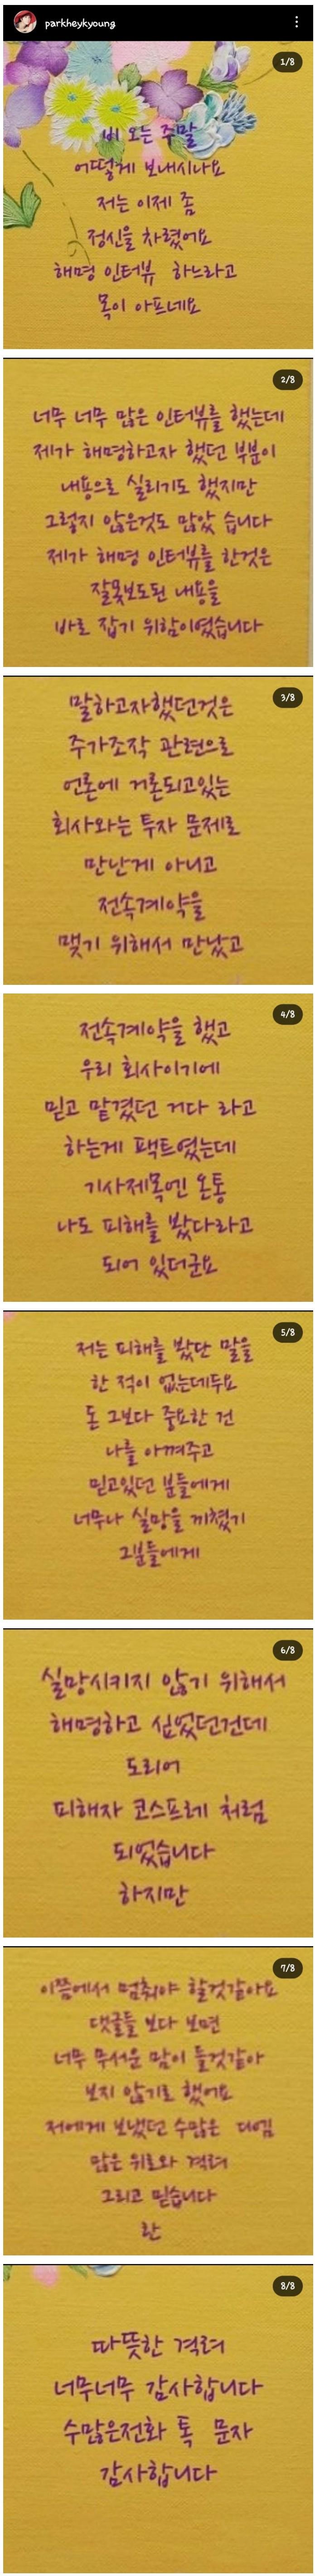 parkheykyoung
1/8
비 오는 주말
어떻게 보내시나요
저는 이제 좀
정신을 차렸어요
해명 인터뷰 하느라고
목이 아프네요
2/8
너무 너무 많은 인터뷰를 했는데
제가 해명하고자 했던 부분이
내용으로 실리기도 했지만
그렇지 않은것도 많았 습니다
제가 해명 인터뷰를 한것은
잘못보도된 내용을
바로 잡기 위함이였습니다
3/8
말하고자했던것은
주가조작 관련으로
언론에 거론되고있는
회사와는 투자 문제로
만난게 아니고
전속계약을
맺기 위해서 만났고
4/8
전속계약을 했고
우리 회사이기에
믿고 맡겼던 거다 라고
하는게 팩트였는데
기사제목엔 온통
나도 피해를 봤다라고
되어 있더군요
5/8
저는 피해를 봤단 말을
한 적이 없는데두요
돈 그보다 중요한 건
나를 아껴주고
믿고있던 분들에게
너무나 실망을 끼쳤기
그분들에게
6/8
실망시키지 않기 위해서
해명하고 싶었던건데
도리어
피해자 코스프레 처럼
되었습니다
하지만
7/8
이쯤에서 멈춰야 할것같아요
댓글들 보다 보면
너무 무서운 맘이 들것같아
보지 않기로 했어요
저에게 보냈던 수많은 디엠
많은 위로와 격려
그리고 믿습니다
란
8/8
따뜻한 격려
너무너무 감사합니다
수많은전화 톡 문자
감사합니다